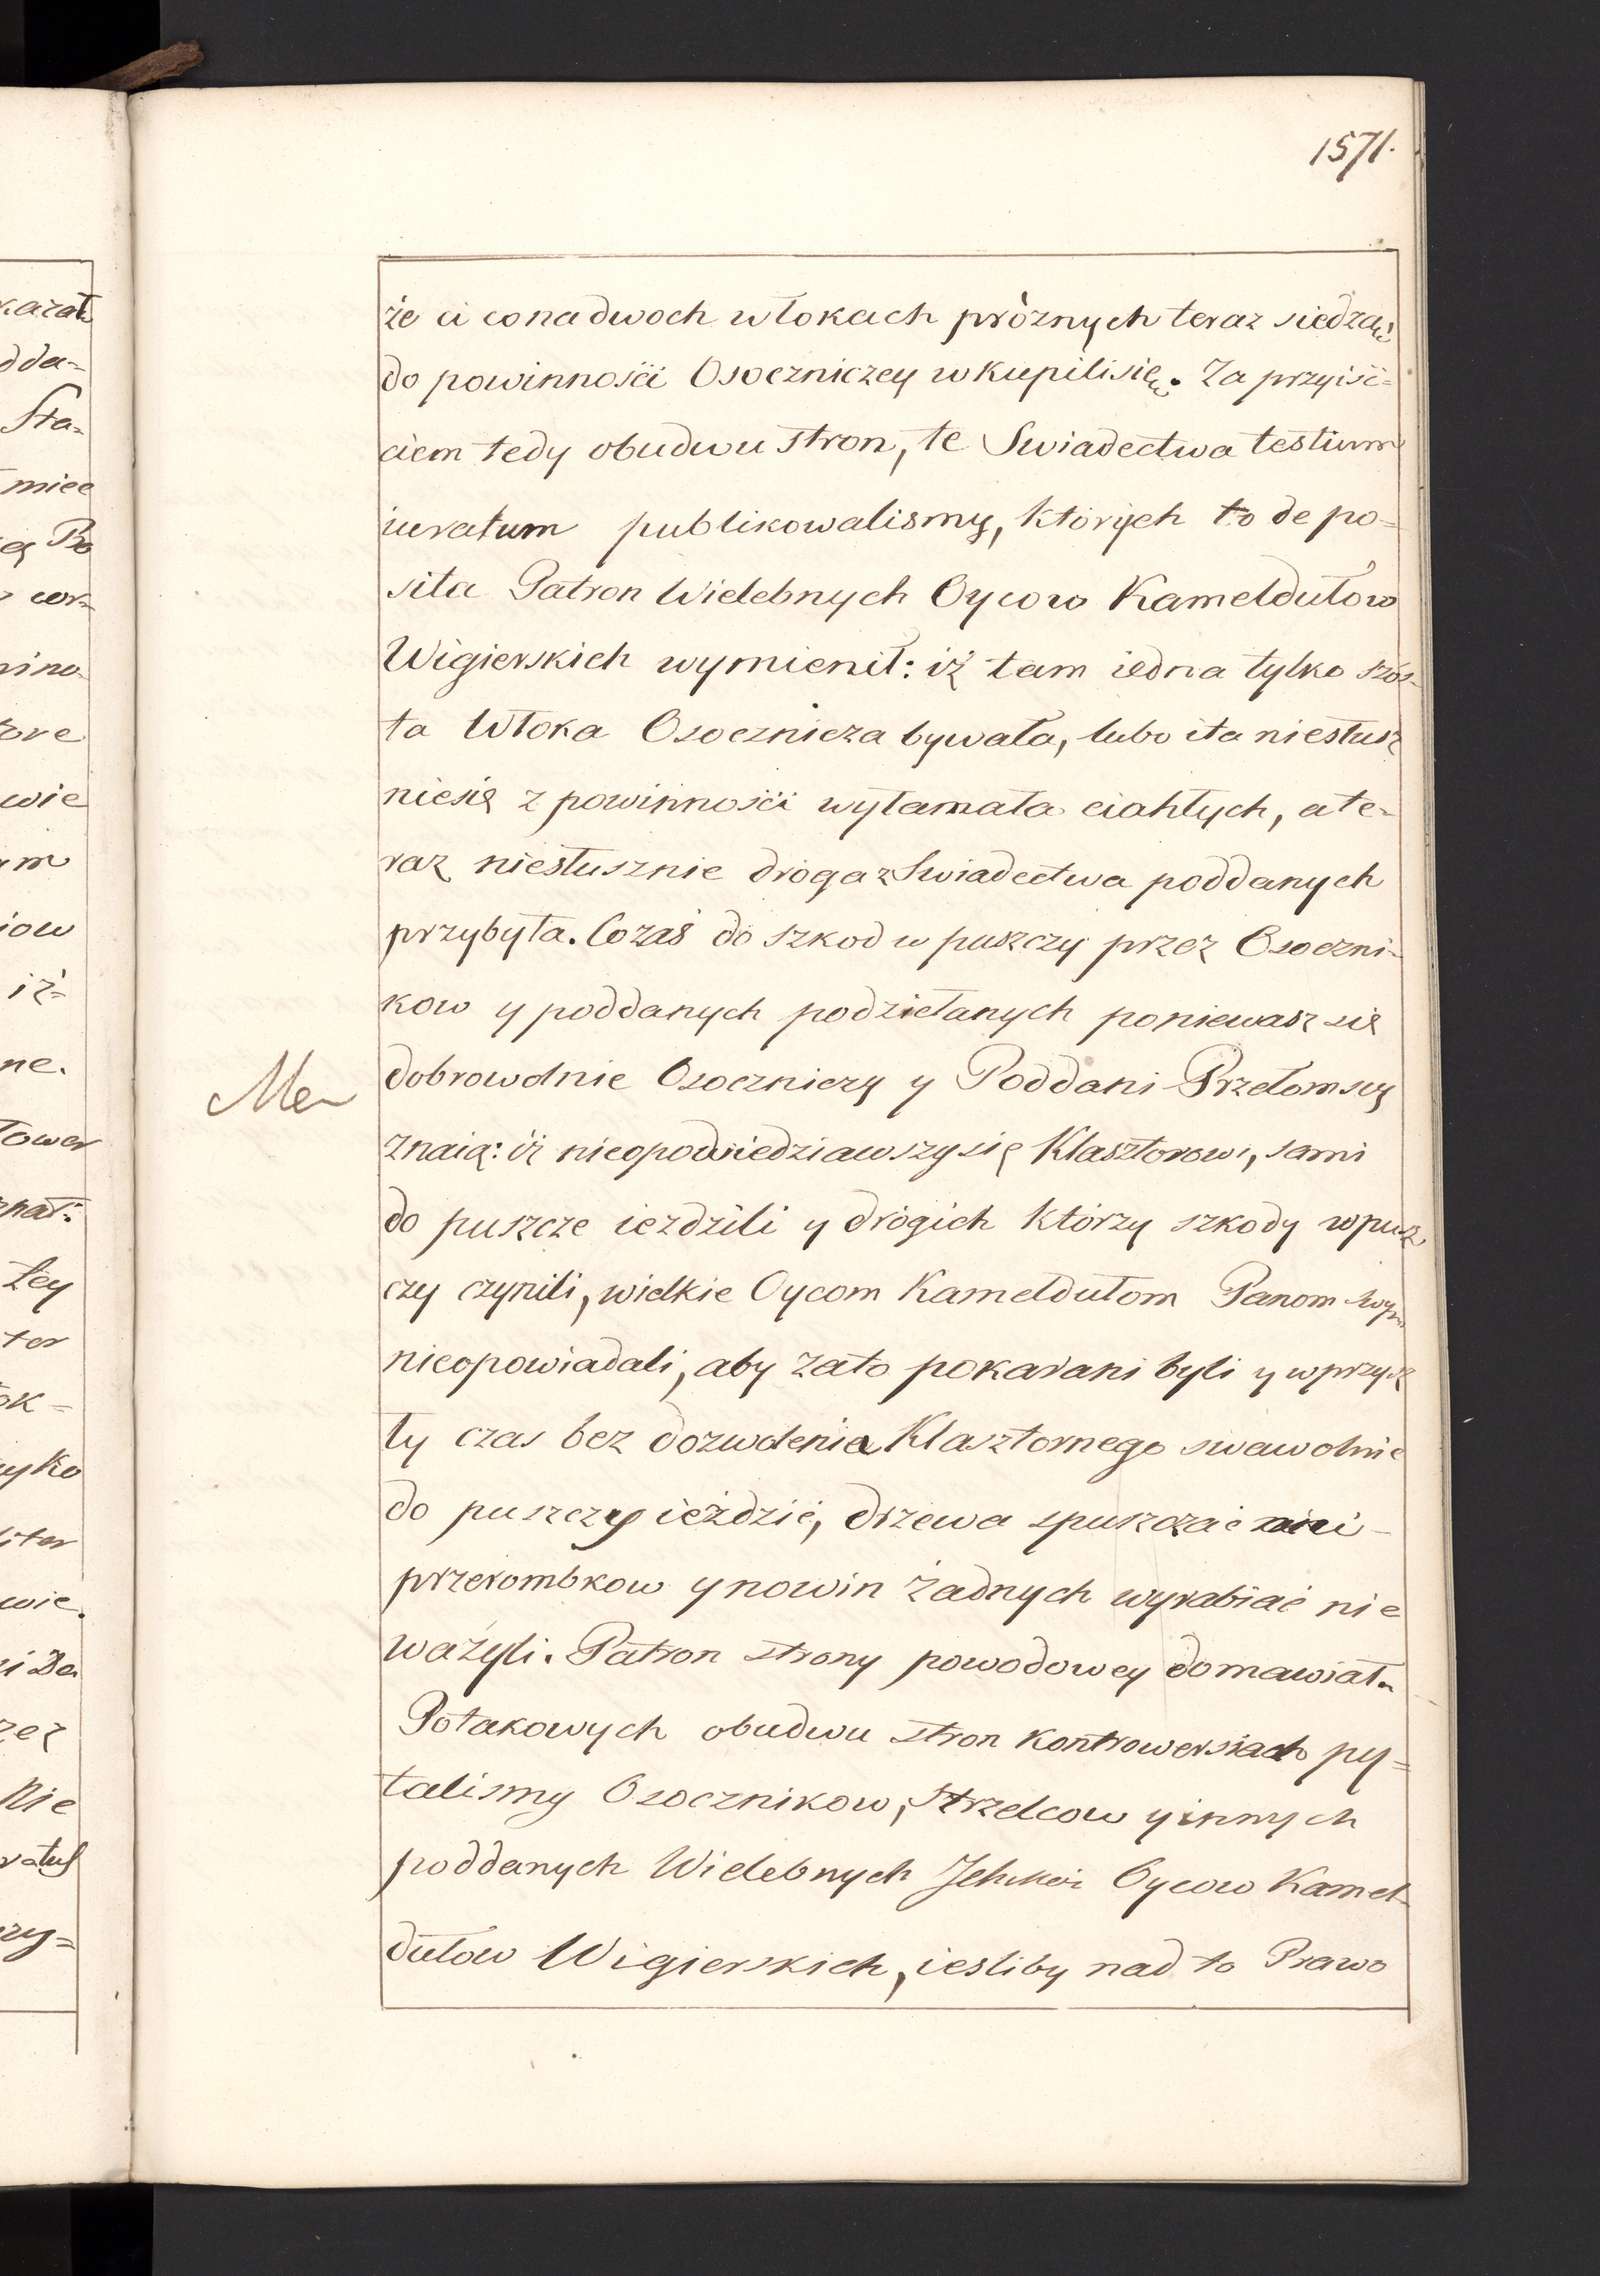 1571.
że ci co na dwoch włokach próznych teraz siedzą
do powinnosci Osoczniczey wkupili się. Za przyiść=
ciem tedy obudwu stron, te Swiadectwa testium
iuratum publikowalismy, których to depo=
sita Patron Wielebnych Oycow Kameldułow
Wigierskich wymienił: iż tam iedna tylko szós-
ta Włoka Osocznicza bywała, lubo i ta niesłusz
nie się z powinności wyłamała ciahłych, a te-
raz niesłusznie droga z Swiadectwa poddanych
przybyła. Co zaś do szkod w puszczy przez Osoczni-
kow y poddanych podziełanych poniewasz się
dobrowolnie Osoczniczy y Poddani Przełomscy
Me
znaią: iż nieopowiedziawszy się Klasztorowi, sami
do puszcze iezdzili y drógich którzy szkody w pusz
czy czynili, wielkie Oycom Kameldułom Panom swym
nieopowiadali, aby za to pokarani byli y w przysz
ły czas bez dozwolenia Klasztornego swawolnie
do puszczy ieździć, drzewa spuszczać ani
przerombkow y nowin żadnych wyrabiać nie
ważyli. Patron strony powodowey domawiał.
Po takowych obudwu stron kontrowersiach py=
talismy Osocznikow, Strzelcow y innych
poddanych Wielebnych Oycow Kamel-
dułow Wigierskich, iesliby nad to Prawo
karał
dda=
Sta=
miec